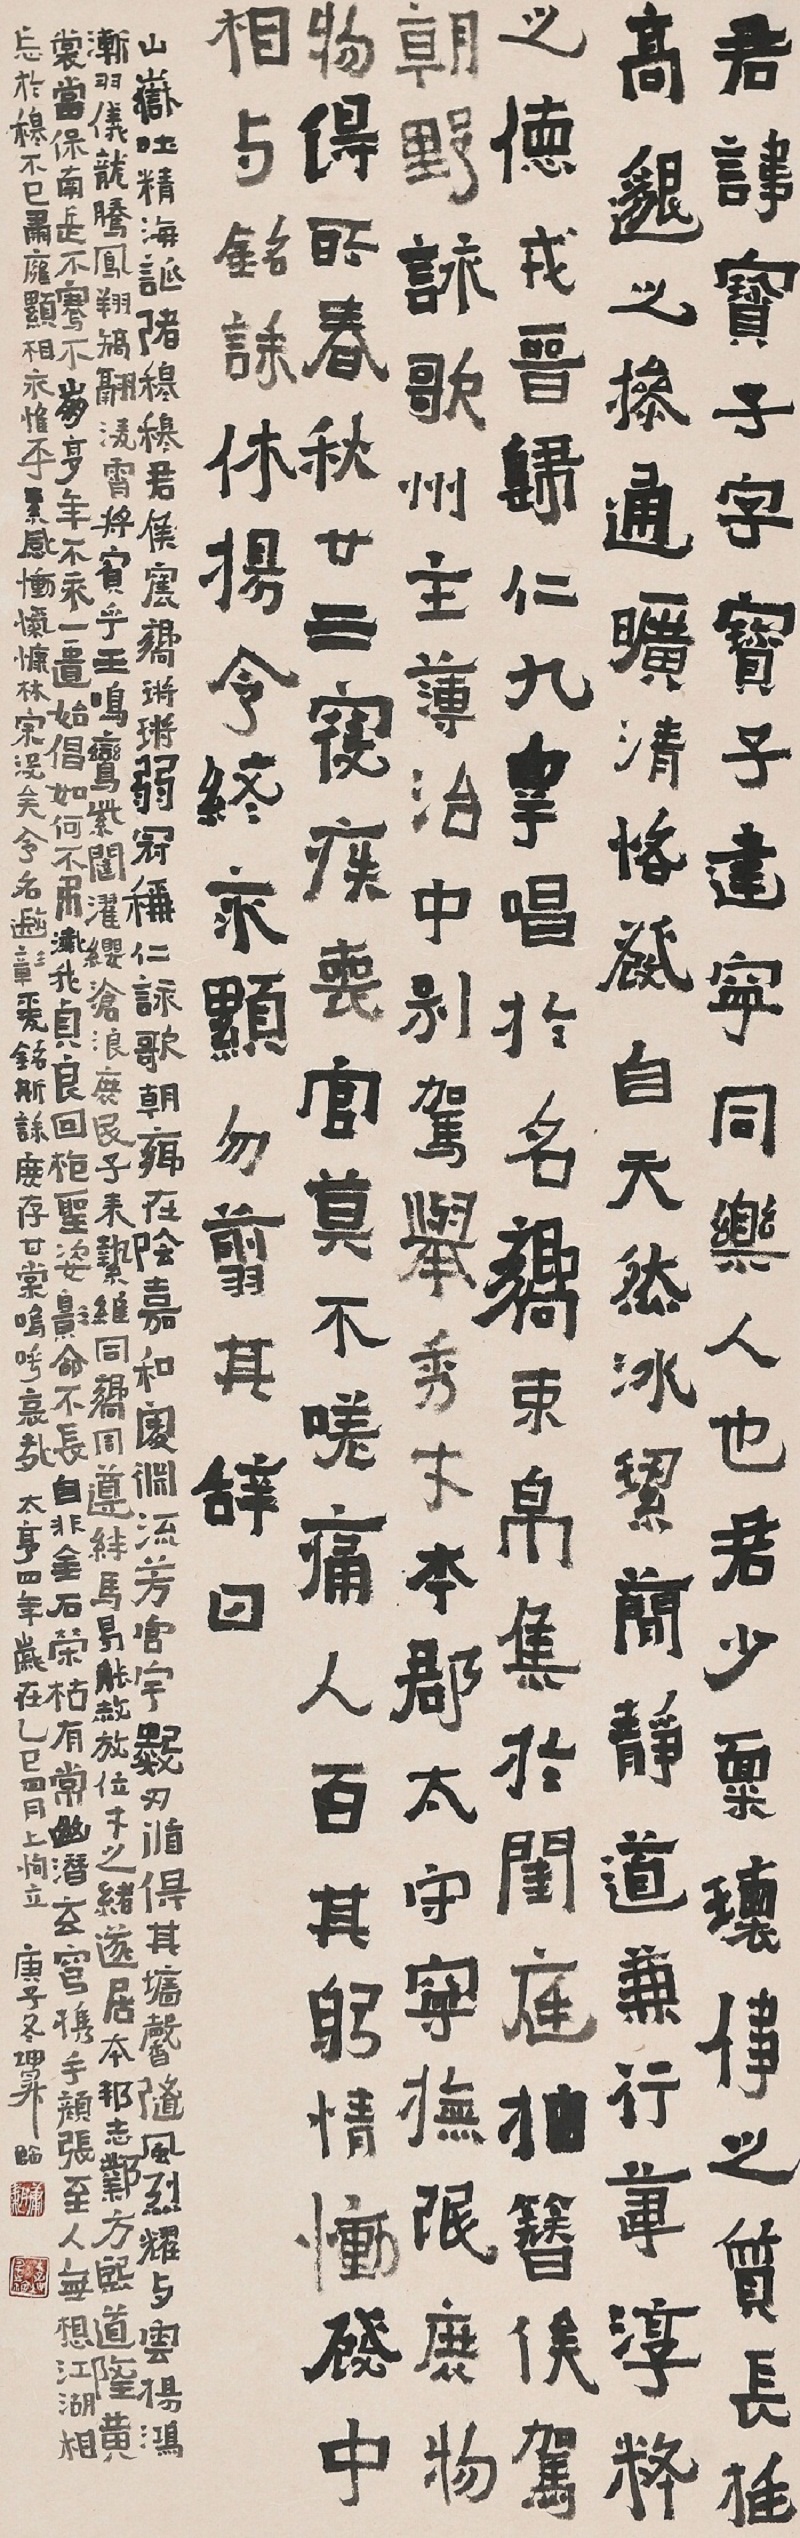 君諱寶子字寶子建寧同樂人也君少稟瓌偉之質長挺
高邈之操通曠清恪發自天然冰絜簡靜道兼行葦淳粹
之德戎晉歸仁九皐唱於名嚮束帛集於閨庭抽簪俟駕
朝野詠歌州主薄治中別駕舉秀才本郡太守寧撫氓庶物
物得所春秋廿三寑疾喪官莫不嗟痛人百其躬情慟發中
相与銘誄休揚令終永顯勿翦其辭曰
山嶽吐精海誕陼穆穆君侯震嚮鏘鏘弱冠稱仁詠歌朝鄉在陰嘉和處淵流芳宮宇數仞循得其墻馨隨風烈耀与雲揚鴻
漸羽儀龍騰鳳翔矯翮淩霄將賓乎王鳴鸞紫闥濯纓滄浪庶民子來縶維同嚮同遵絆馬曷能赦放位才之緒遂居本邦志鄴方熙道隆黃
裳當保南岳不騫不崩享年不永一匱始倡如何不弔殲我貞良回枹聖姿影命不長自非金石榮枯有常幽潛玄穹攜手顏張至人無想江湖相
忘於穆不已肅雍顯相永惟平素感慟愾慷林宗沒矣令名遐彰爰銘斯誄庶存甘棠嗚呼哀哉 太亨四年歲在乙巳四月上恂立 庚子冬 臨